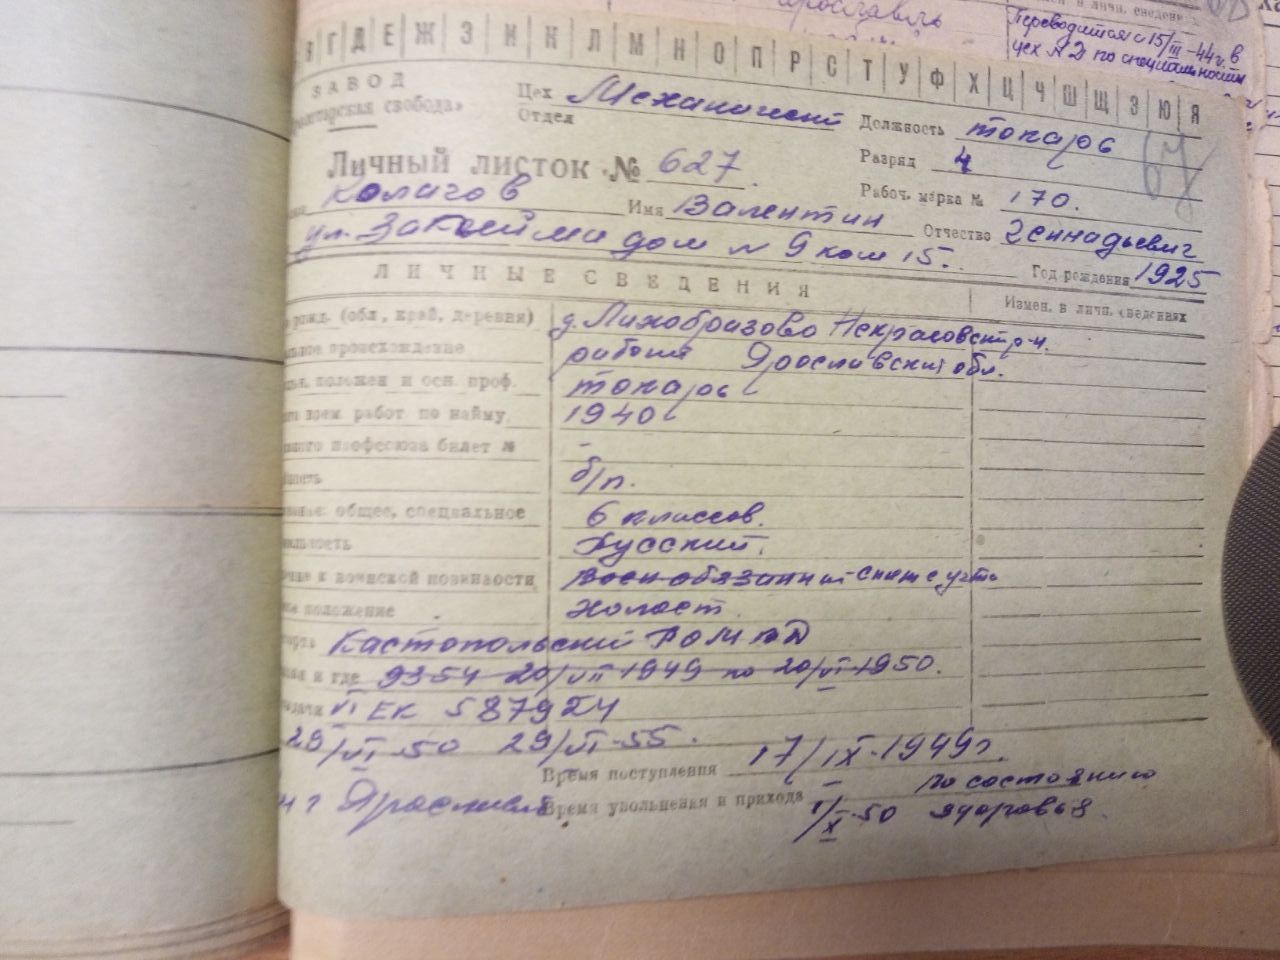 Ярославль
Переводится с 15/III-44г. в
цех №2 по специальности
В Г Д Е Ж З И К Л М Н О П Р С Т У Ф Х Ц Ч Ш Щ Э Ю Я
ЗАВОД
свобода»
Цех Механический
Отдел
Должность токарь
Личный листок № 627.
Разряд 4
67
Рабоч. марка № 170.
Имя Валентин Отчество Геннадьевич
ул. дом № 9 ком 15.
Год рождения 1925
ЛИЧНЫЕ СВЕДЕНИЯ
Измен. в личн. сведениях
рожд. (обл., край, деревня) д. Некрасовск р-н.
происхождение рабочий Ярославский обл.
положен и осн. проф. токарь
врем. работ. по найму, 1940
профсоюза билет № -
б/п.
общее, специальное 6 классов.
Русский.
к воинской повинности военнообязанный снят с учета
положение холост
РОМВД
и где 9354 20/VII 1949 по 20/VI 1950.
VI ЕК 587924
29/VI-50 29/VI-55.
Время поступления 17/IX-1949г.
г Ярославль Время увольнения и прихода 1/X-50 по состоянию
здоровья.